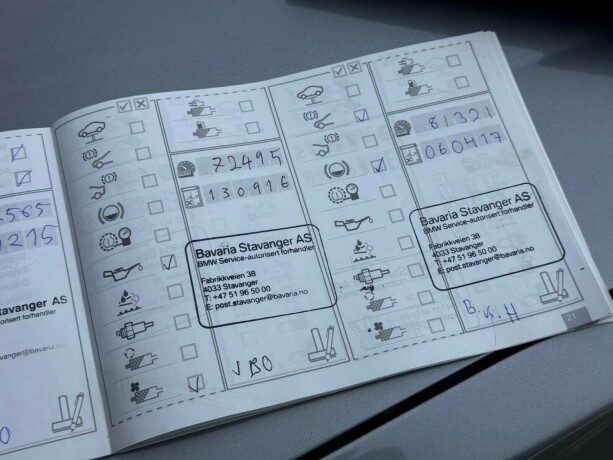 2565
1215
Stavanger AS
sert forhandler
vanger@bavaria.
72495
130916
Bavaria Stavanger AS
BMW Service-autorisert forhandler
Fabrikkveien 38
4033 Stavanger
T: +47 51 96 50 00
E: post.stavanger@bavaria.no
VBO
81321
060417
Bavaria Stavanger AS
BMW Service-autorisert forhandler
Fabrikkveien 38
4033 Stavanger
T: +47 51 96 50 00
E: post.stavanger@bavaria.no
B.K.H
21